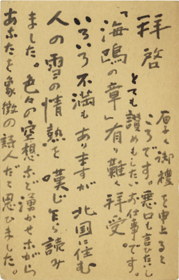 拝啓
厚く御禮を申上ると
ころです。悪口も言ひたし
とても讃めもしたい仕事です。
「海鴎の章」有り難く拝受
いろいろ不満もありますが北国に住む
人の雪の情熱を嘆じ乍ら読み
ました。色々の空想など湧かせながら
あなたを象徴の詩人だと思ひました。